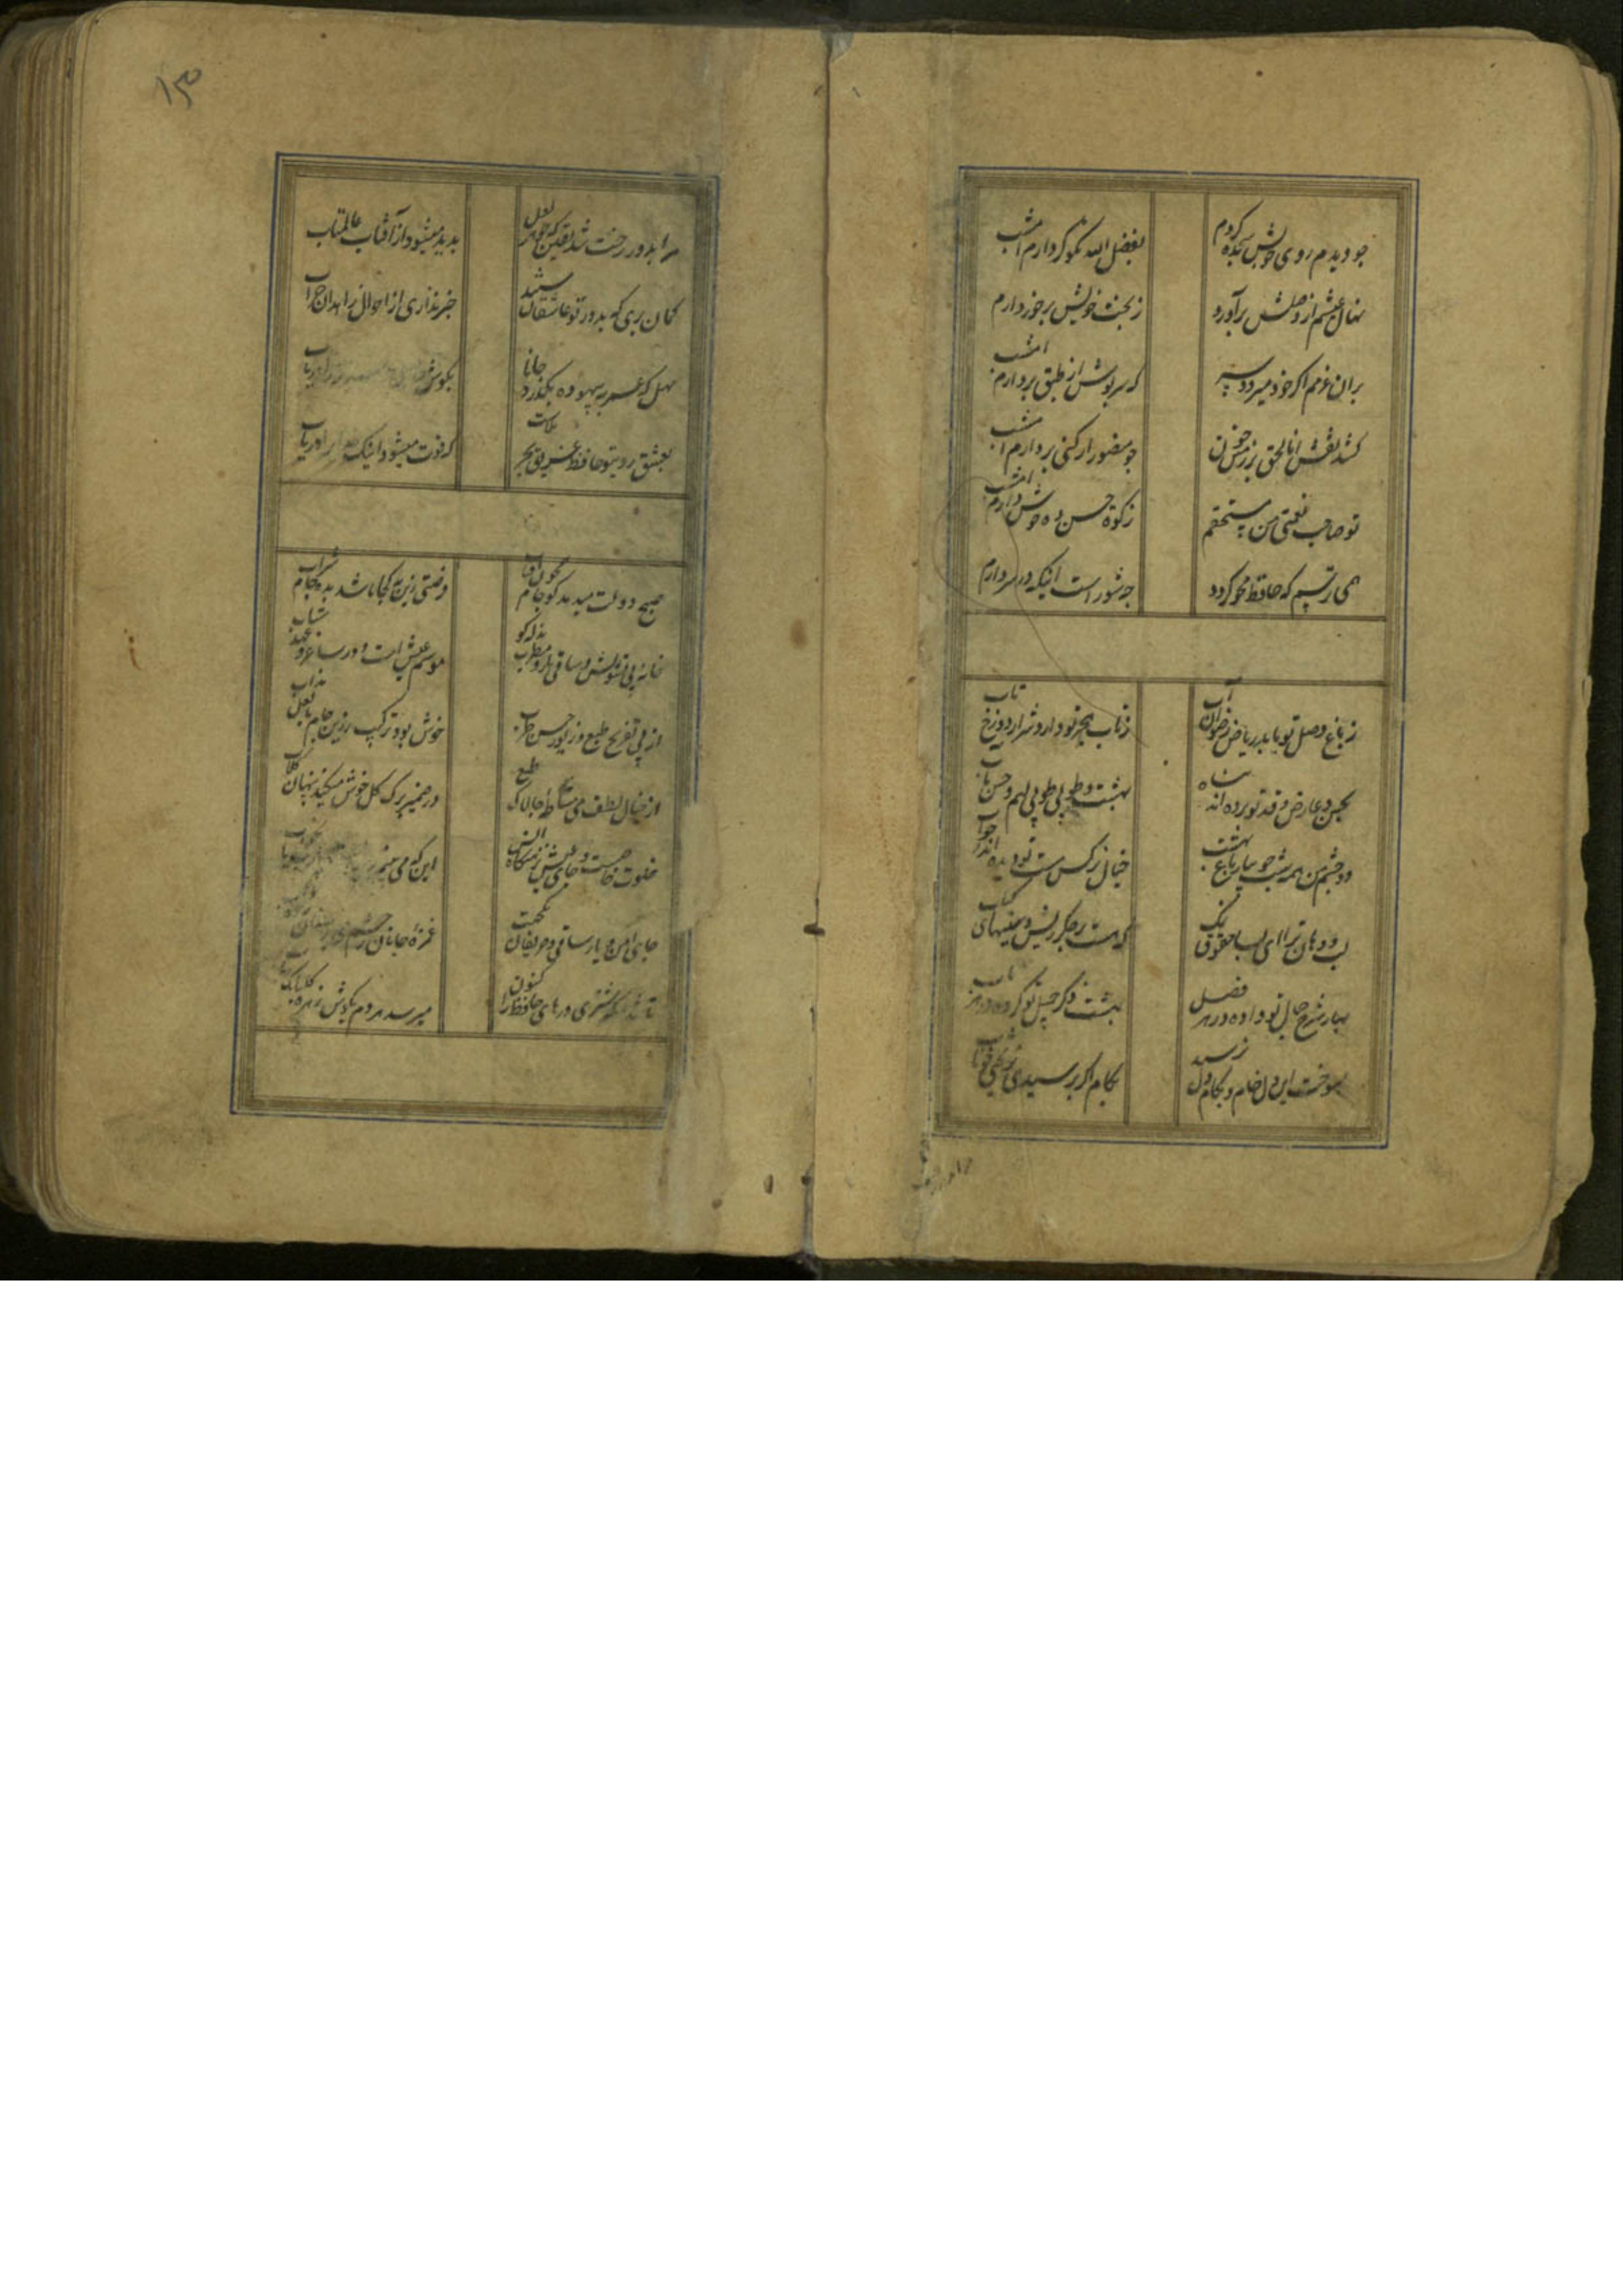 چو دیدم روی خوبش سجده کردم
بفضل الله نکو کردارم امشب
نهال عیشم از وصلش برآورد
ز بخت خویش برخوردارم امشب
بران عزمم اکر خود میرود سر
که سرپوش از طبق بردارم امشب
کشد نقش انا الحق بر زمین خون
چو منصور ار کشی بر دارم امشب
تو صاحب نعمتی من مستحقم
زکوة حسن ده خوش دارم امشب
همی ترسم که حافظ محو کردد
چه شور است اینکه در سر دارم
ز باغ وصل تو یابد ریاض رضوان آب
ز تاب هجر تو دارد شرار دوزخ تاب
بحسن و عارض و قد تو برده اند پناه
بهشت و طوبی طوبی لهم و حسن مآب
دو چشم من همه شب جویبار باغ بهشت
خیال نرکس مست تو دیده اندر خواب
لب و دهان ترا ای بسا حقوق نمک
که هست بر جکر ریش و سینهای کباب
بهار شرح جمال تو داده در هر فصل
بهشت ذکر جمیل تو کرده در هر باب
بسوخت این دل خام و بکام دل نرسید
بکام اکر برسیدی نریختی خوناب
مرا بدور رخت شد یقین که جوهر لعل
پدید میشود از آفتاب عالمتاب
کمان بری که بدور تو عاشقان مستند
خبر نداری از احوال زاهدان خراب
مهل که عمر به بیهوده بکذرد جانا
بکوش
بعشق روی تو حافظ غریق بحر بلاست
که فوت میشود اینک
صبح دولت میدمد کو جام همچون آفتاب
فرصتی زین به کجا باشد بده جام شراب
خانه بی تشویش و ساقی یار و مطرب بذله کو
موسم عیش است و دور ساغر و عهد شباب
از پی تفریح طبع و زیور حسن طرب
خوش بود ترکیب زرین جام با لعل مذاب
از خیال لطف می مشاطه چالاک طبع
در ضمیر برک کل خوش میکند پنهان کلاب
خلوت خاصست و جای امن و نزهتکاه انس
این که می بینم
جای امن و یار ساقی و حریفان
غمزه جانان ز چشم
تا شد مشتری درهای حافظ را کنون
میرسد هر دم بکوش زهره کلبانک
۱۳